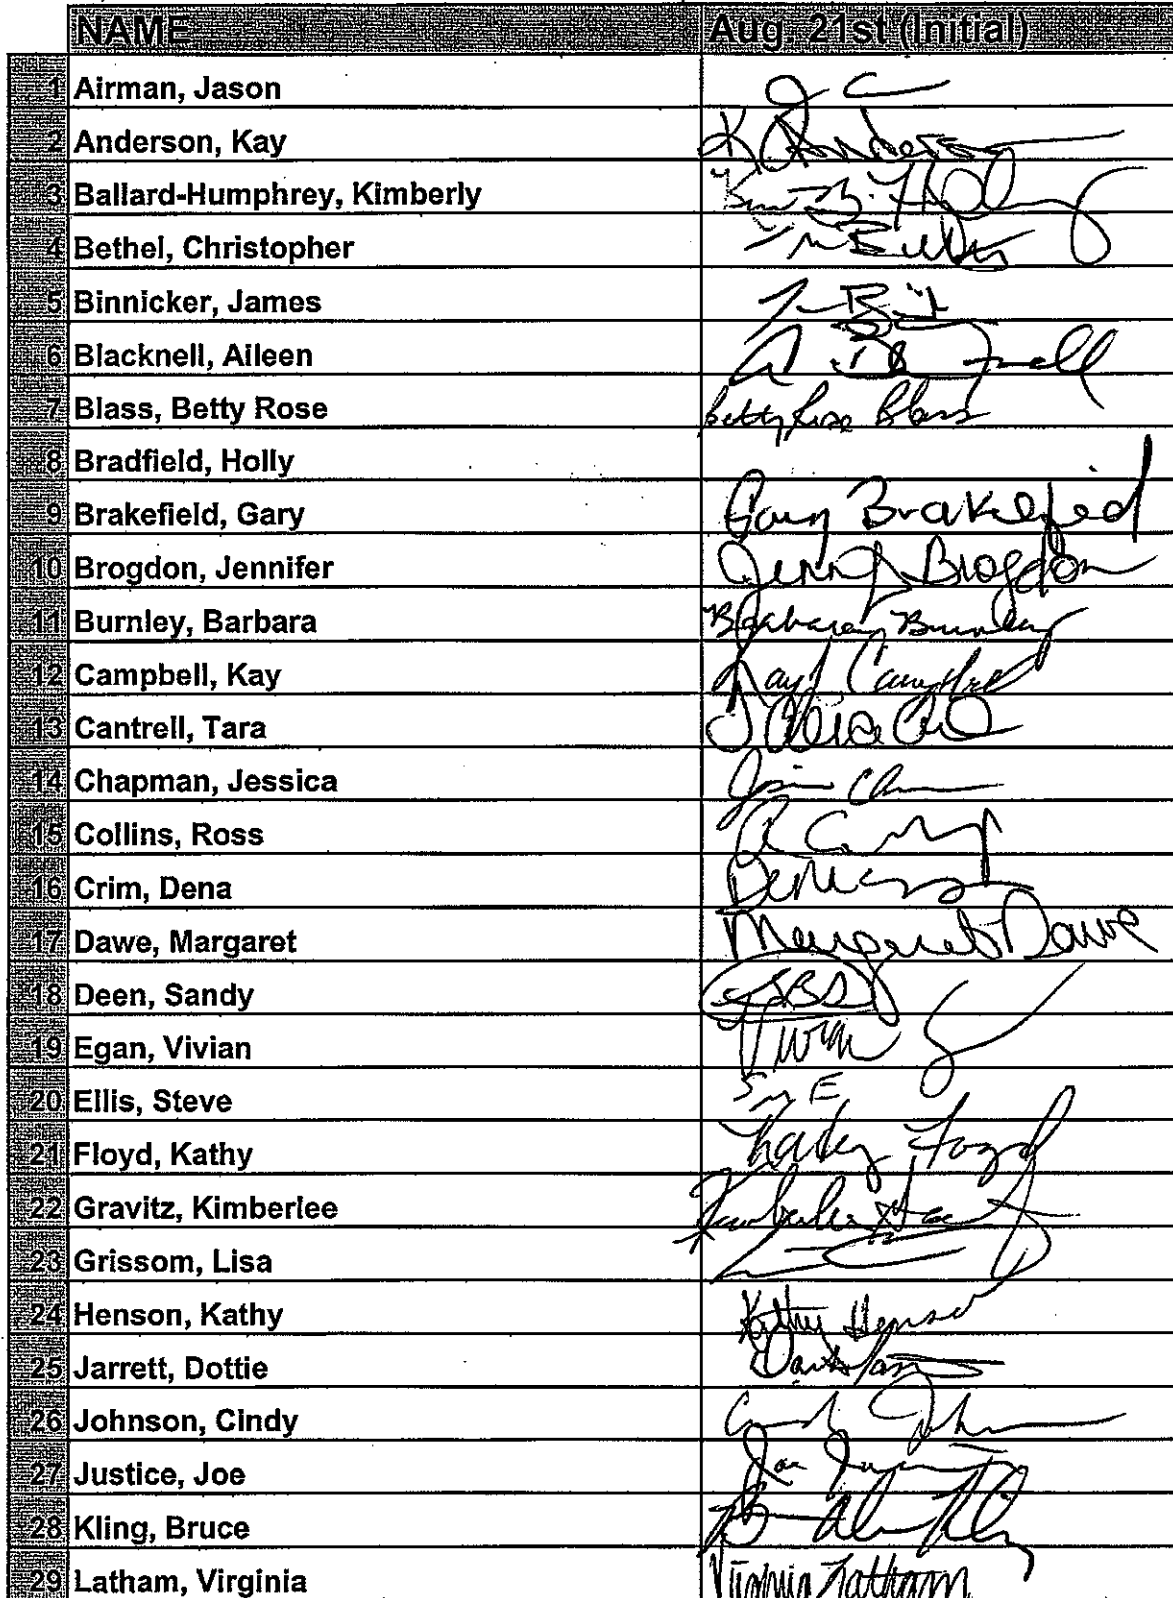 NAME Aug. 21st (Initial)
1 Airman, Jason
2 Anderson, Kay K Anderson
3 Ballard-Humphrey, Kimberly
4 Bethel, Christopher
5 Binnicker, James
6 Blacknell, Aileen
7 Blass, Betty Rose Betty Rose Blass
8 Bradfield, Holly
9 Brakefield, Gary Gary Brakefied
10 Brogdon, Jennifer Brogdon
11 Burnley, Barbara Barbara Burnley
12 Campbell, Kay Kay Campbell
13 Cantrell, Tara
14 Chapman, Jessica
15 Collins, Ross
16 Crim, Dena
17 Dawe, Margaret Margaret Dawe
18 Deen, Sandy SBD
19 Egan, Vivian
20 Ellis, Steve SmE
21 Floyd, Kathy Kathy Floyd
22 Gravitz, Kimberlee
23 Grissom, Lisa
24 Henson, Kathy Kathy Henson
25 Jarrett, Dottie
26 Johnson, Cindy
27 Justice, Joe Joe
28 Kling, Bruce
29 Latham, Virginia Virginia Latham